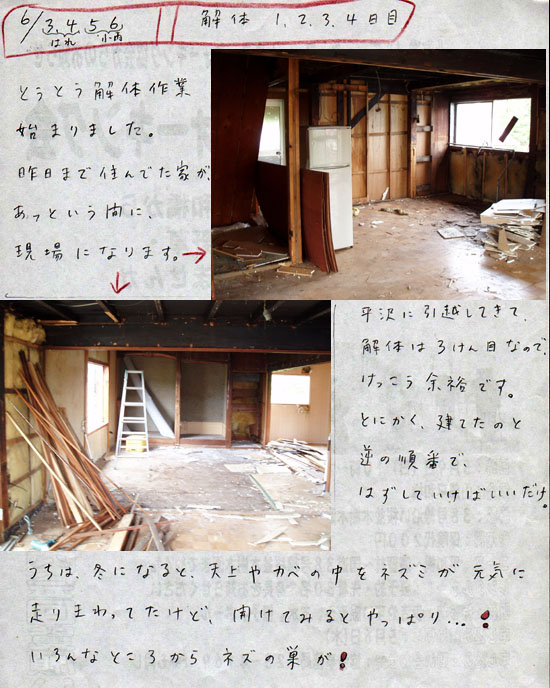 6/3,4,5,6 解体 1,2,3,4日目
はれ 小雨
とうとう解体作業
始まりました。
昨日まで住んでた家が、
あっという間に、
現場になります。→
平沢に引越してきて、
解体は3けん目なので、
けっこう余裕です。
とにかく、建てたのと
逆の順番で、
はずしていけばいいだけ。
うちは、冬になると、天上やカベの中をネズミが元気に
走りまわってたけど、開けてみるとやっぱり…!
いろんなところからネズの巣が!